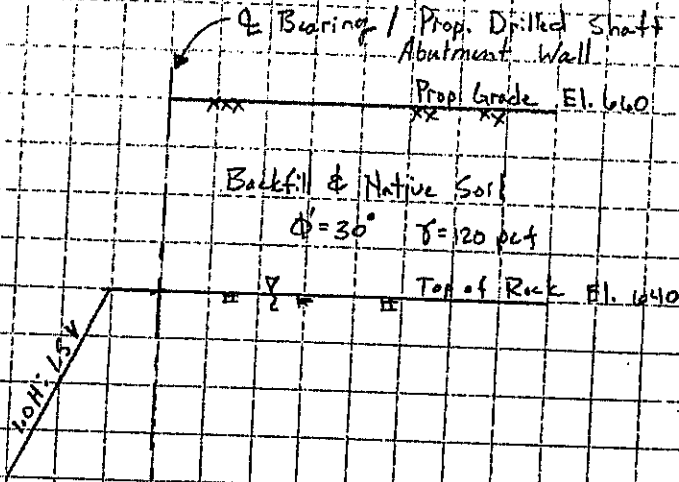 ℄ Bearing / Prop. Drilled Shaft
Abutment Wall
Prop. Grade El. 660
Backfill & Native Soil
Φ' = 30° γ = 120 pcf
Top of Rock El. 640
1.0H:1.5V